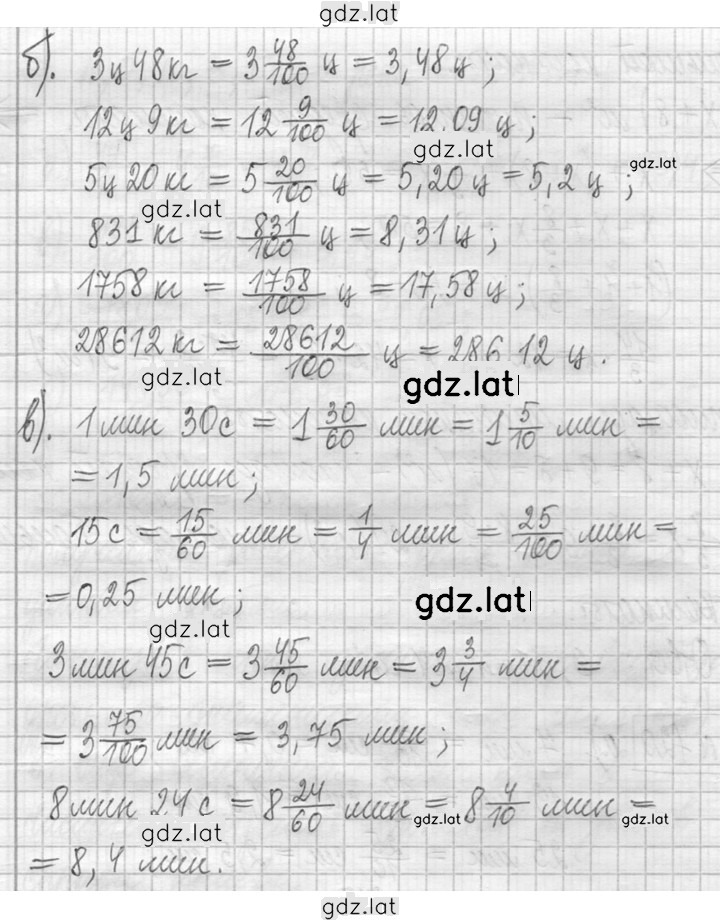 gdz.lat
б). 3ц 48кг = 3 48/100 ц = 3,48ц ;
12ц 9кг = 12 9/100 ц = 12.09 ц ;
gdz.lat
gdz.lat
5ц 20 кг = 5 20/100 ц = 5,20 ц = 5,2 ц ;
gdz.lat
831 кг = 831/100 ц = 8,31ц ;
1758 кг = 1758/100 ц = 17,58 ц ;
28612 кг = 28612/100 ц = 286,12 ц .
gdz.lat
gdz.lat
в). 1 мин 30с = 1 30/60 мин = 1 5/10 мин =
= 1,5 мин ;
15с = 15/60 мин = 1/4 мин = 25/100 мин =
= 0,25 мин ;
gdz.lat
gdz.lat
3 мин 45с = 3 45/60 мин = 3 3/4 мин =
= 3 75/100 мин = 3,75 мин ;
8 мин 24 с = 8 24/60 мин = 8 4/10 мин =
gdz.lat
gdz.lat
gdz.lat
= 8,4 мин.
gdz.lat